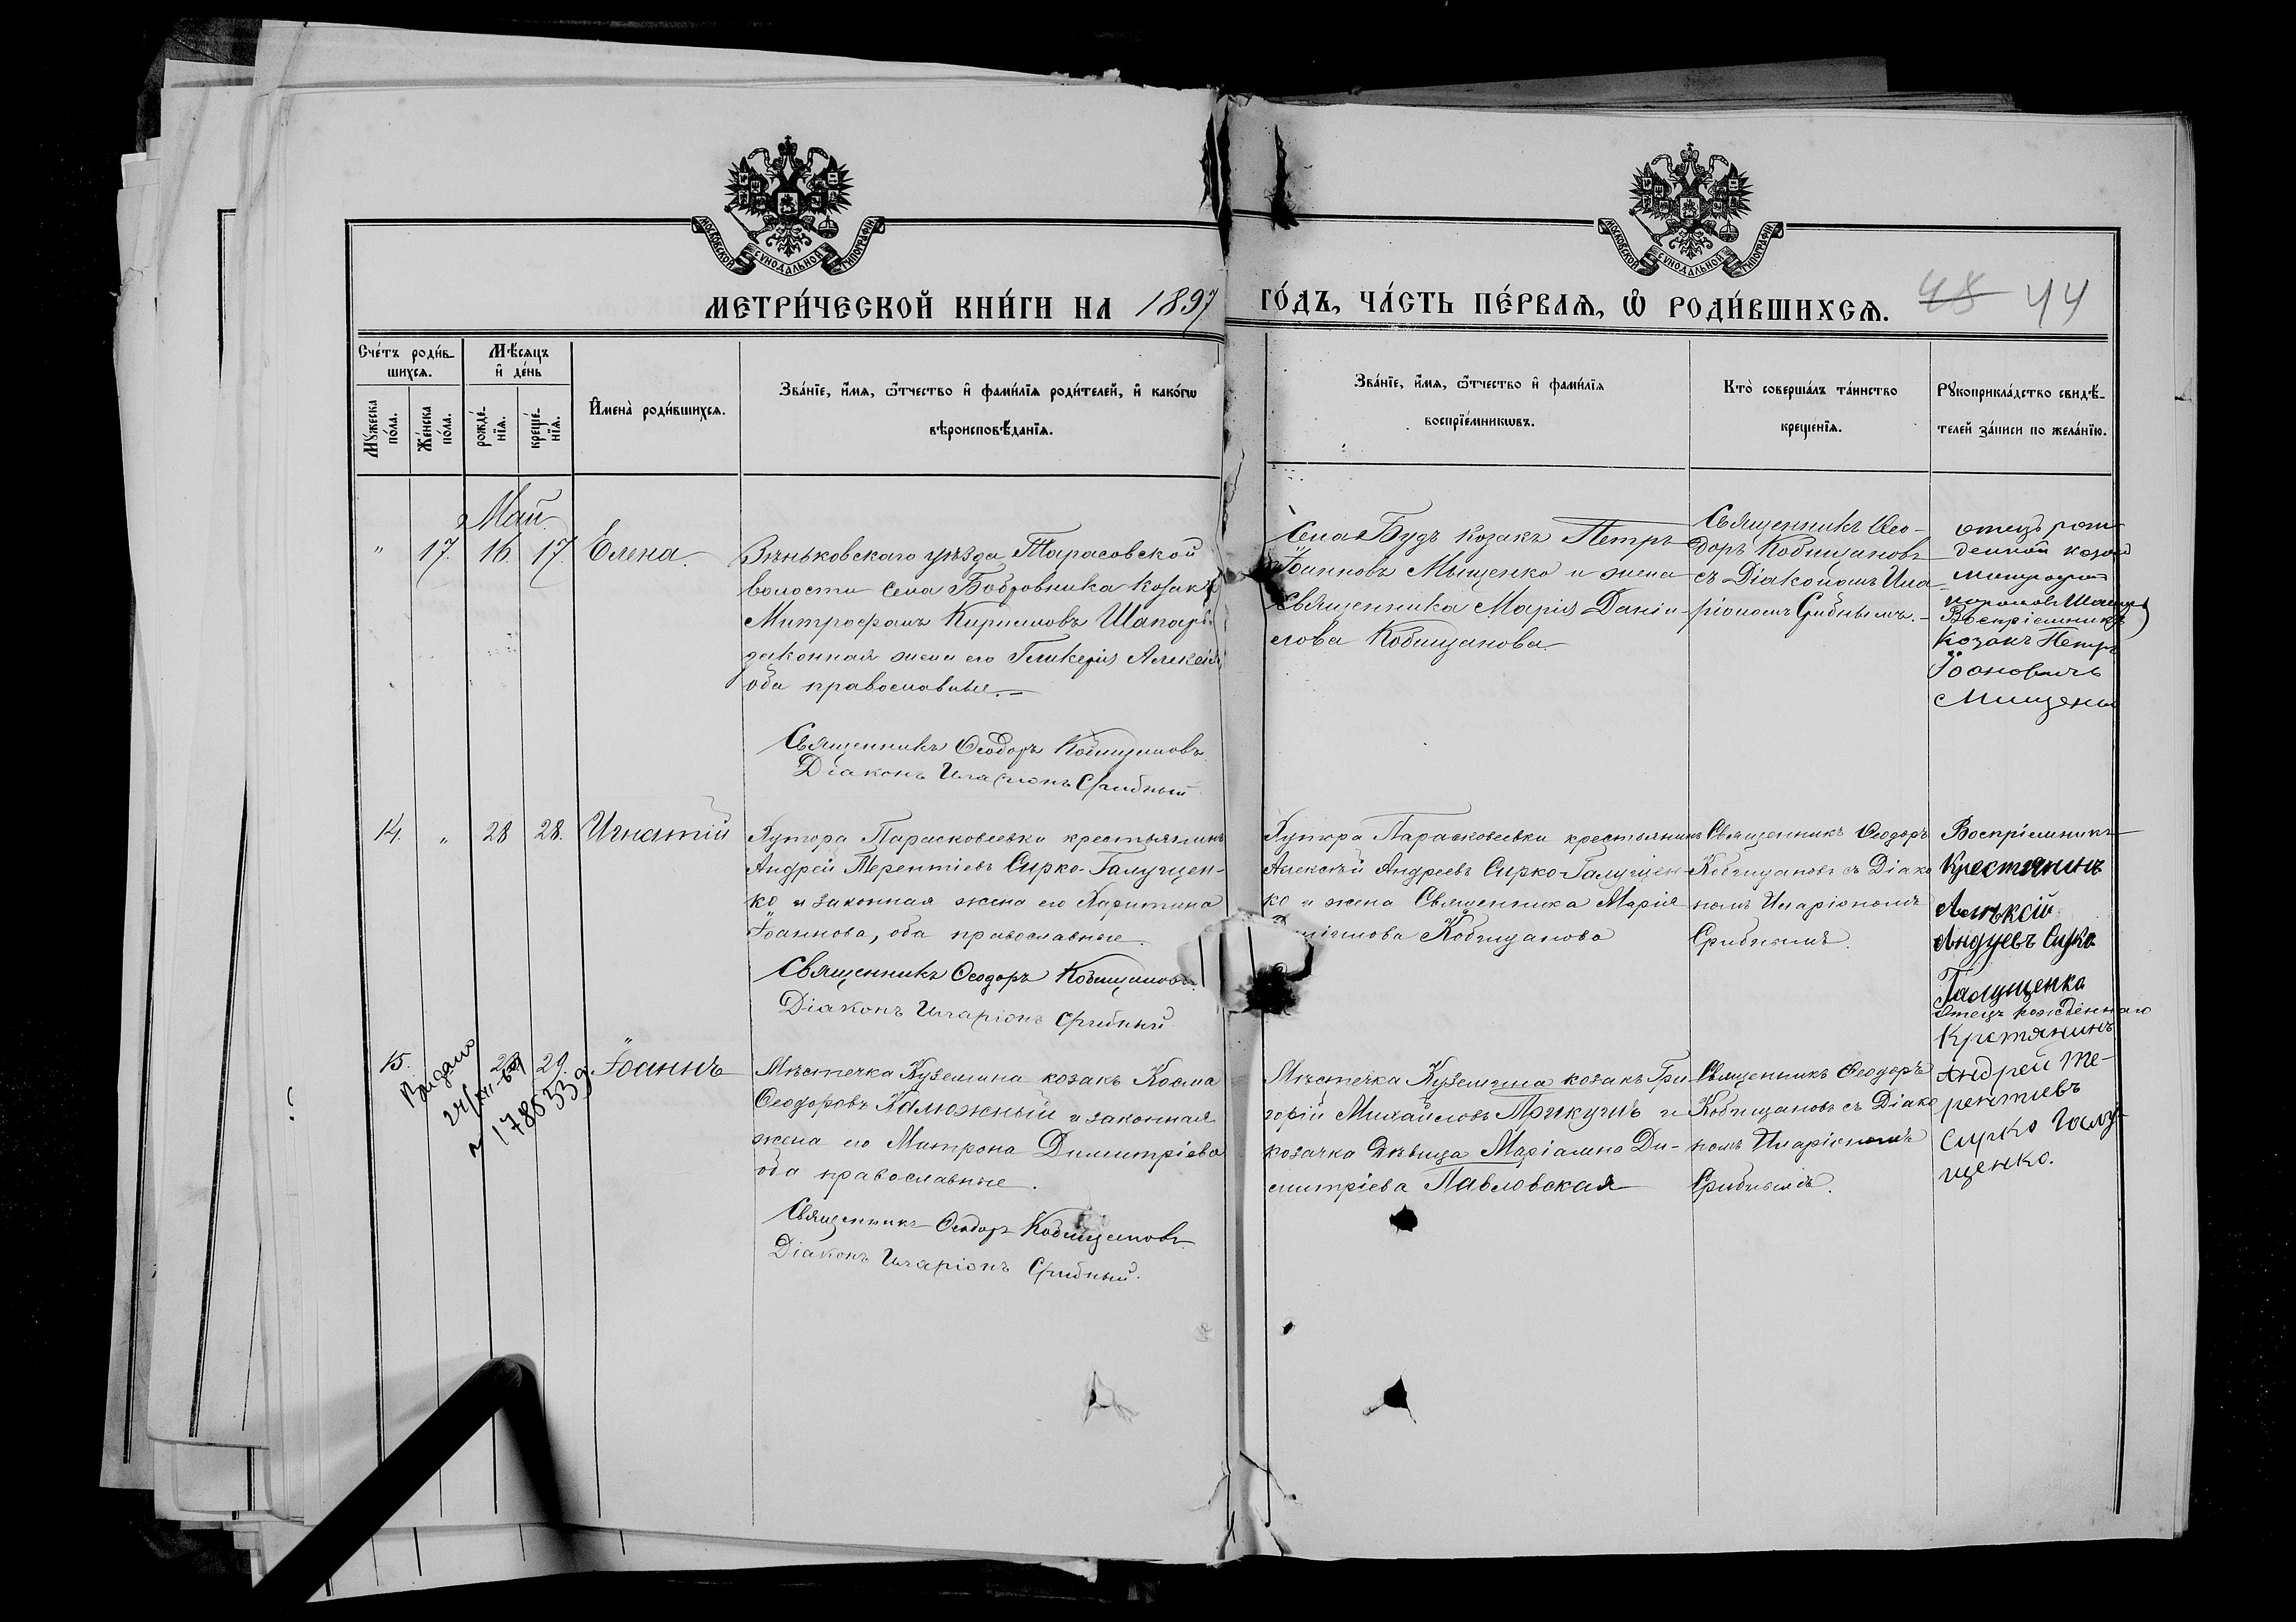 МОСКОВСКОЙ СѴНОДАЛЬНОЙ ТИПОГРАФІИ
МОСКОВСКОЙ СѴНОДАЛЬНОЙ ТИПОГРАФІИ
МЕТРИ́ЧЕСКОЙ КНИ́ГИ НА 1897
ГО́ДЪ, ЧА́СТЬ ПЕ́РВАѦ, Ѡ҆ РОДИ́ВШИХСѦ. 48 44
Сче́тъ роди́в-
шихсѧ.
Мꙋ́жеска по́ла.
Же́нска по́ла.
Мѣ́сѧцъ
и҆ де́нь
рожде́-нїѧ.
креще́-нїѧ.
И҆мена̀ роди́вшихсѧ.
Зва́нїе, и҆́мѧ, ѻ҆́тчество и҆ фами́лїѧ роди́телей, и҆ како́гѡ
вѣроисповѣ́данїѧ.
Зва́нїе, и҆́мѧ, ѻ҆́тчество и҆ фами́лїѧ
воспрїе́мникѡвъ.
Кто̀ соверша́лъ та́инство
креще́нїѧ.
Рꙋкоприкла́дство свидѣ́-
телей за́писи по жела́нїю.
Май
" 17. 16. 17. Елена.
Зѣньковскаго уѣзда Тарасовской
волости села Бобровника козакъ
Митрофанъ Кирилловъ
законная жена его Гликерія
оба православные.
Священникъ Ѳеодоръ Кобищановъ
Діаконъ Иларіонъ Срибный
Села Будъ козакъ Петръ
Іоанновъ Мищенко и жена
Священника Марія Даніи-
лова Кобищанова
Священникъ Ѳео-
доръ Кобищановъ
съ Діакономъ Ила-
ріономъ Срибнымъ.
отецъ рож-
денной козак
Воспріемникъ
Козакъ Петръ
Іоановичъ
Мищенко
14. " 28 28. Игнатій
Хутора Парасковеевки крестьянинъ
Андрей Терентіевъ Сирко-Галущен-
ко и законная жена его Харитина
Іоаннова, оба православные.
Священникъ Ѳеодоръ Кобищановъ
Діаконъ Иларіонъ Срибный
Хутора Парасковеевки крестьянинъ
Алексѣй Андреевъ Сирко-Галущен-
ко и жена Священника Марія
Даніилова Кобищанова
Священникъ Ѳеодоръ
Кобищановъ съ Діако
номъ Иларіономъ
Срибнымъ.
Воспріемникъ
Крестянинъ
Алѣксій
Андреевъ Сирко
Галущенка
Отецъ рожденнаго
Крстянинъ
Андрей Те-
рентиевъ
Сирко Галу-
щенко.
15. 29. 29. Іоаннъ
Видано
24/XII-69
178633 д.
Мѣстечка Куземина козакъ Косма
Ѳеодоровъ Калюжный и законная
жена его Матрона Димитріева
оба православные.
Священникъ Ѳеодоръ Кобищановъ
Діаконъ Иларіонъ Срибный.
Мѣстечка Куземина козакъ Гри
горій Михайловъ Прикупъ и
козачка дѣвица Маріамна Ди-
митріева Павловская
Священникъ Ѳеодоръ
Кобищановъ съ Діако
номъ Иларіономъ
Срибнымъ.